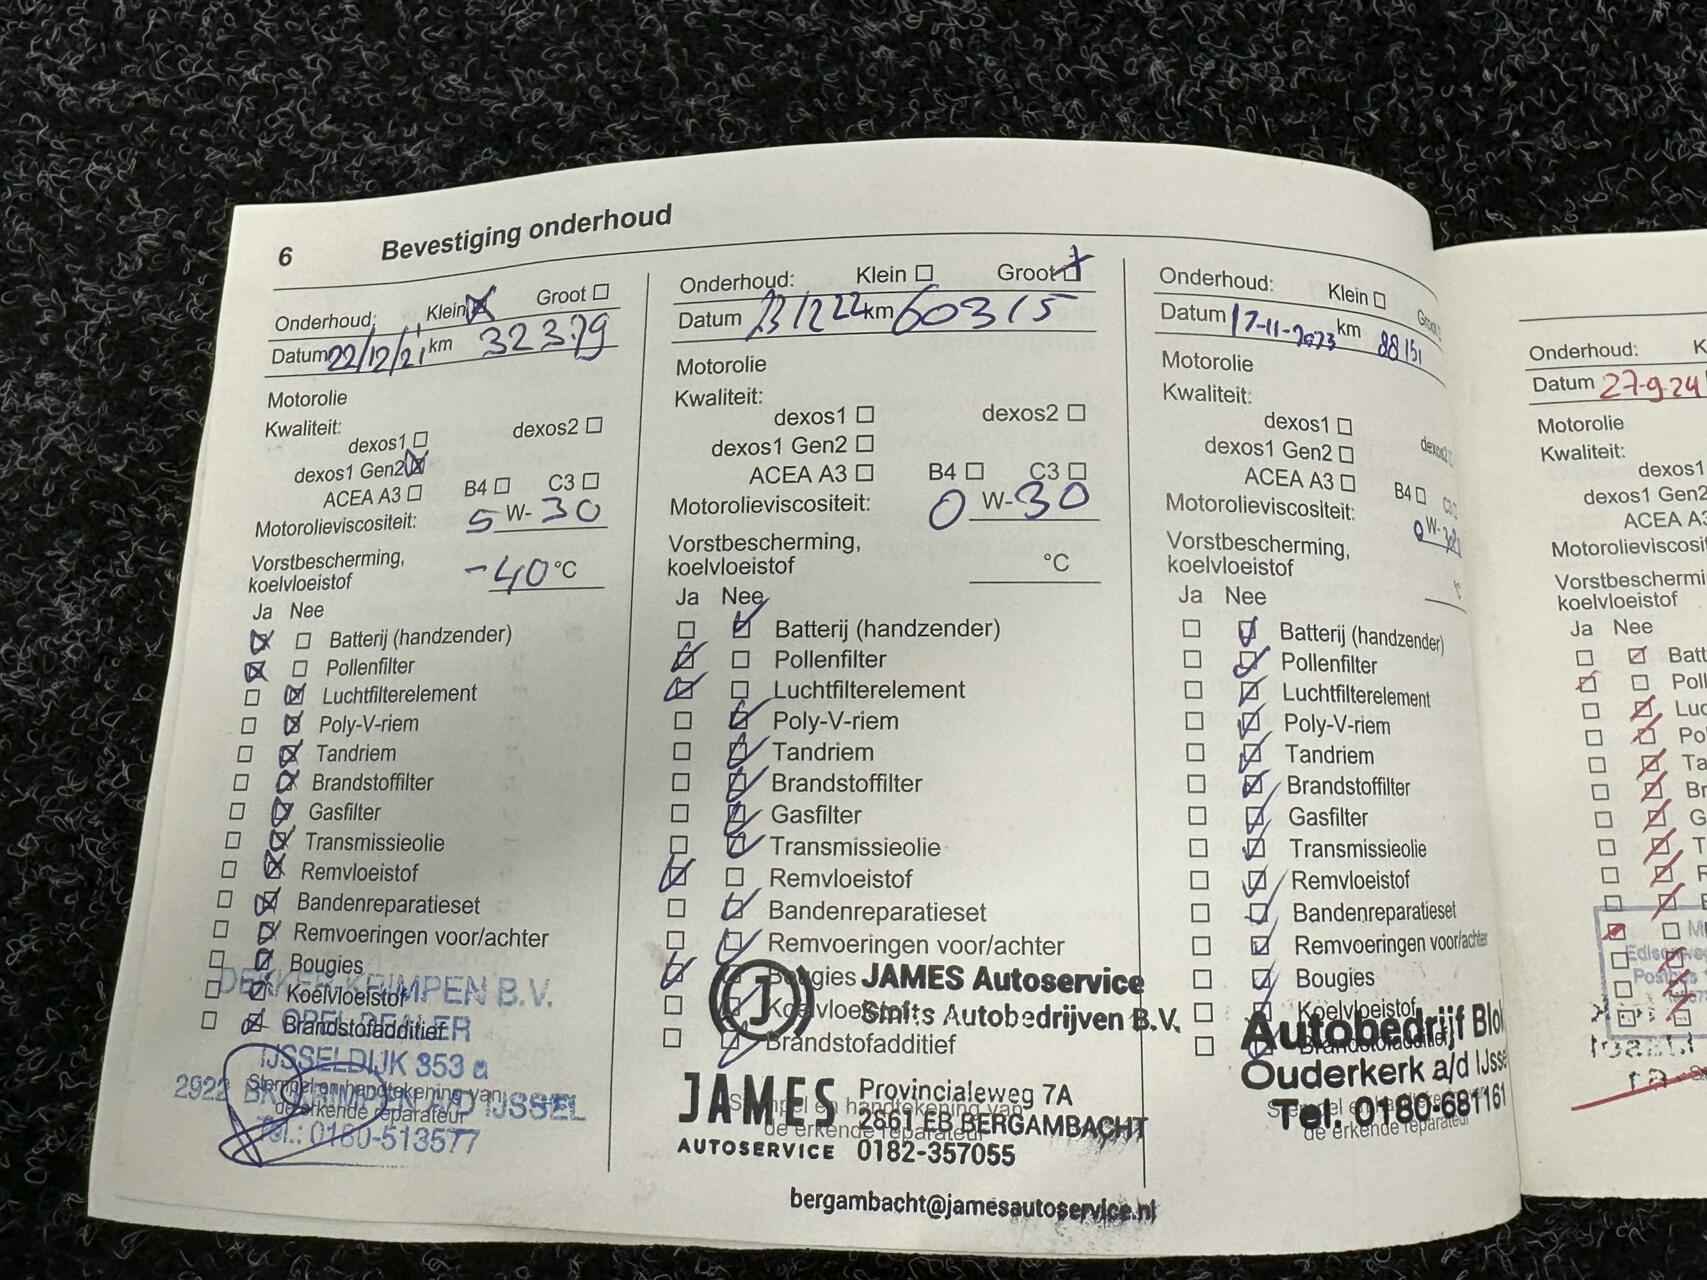 6 Bevestiging onderhoud
Onderhoud: Klein Groot
Datum 22/12/21 km 32379
Motorolie
Kwaliteit:
dexos1 dexos2
dexos1 Gen2
ACEA A3 B4 C3
Motorolieviscositeit: 5 W- 30
Vorstbescherming,
koelvloeistof -40 °C
Ja Nee
Batterij (handzender)
Pollenfilter
Luchtfilterelement
Poly-V-riem
Tandriem
Brandstoffilter
Gasfilter
Transmissieolie
Remvloeistof
Bandenreparatieset
Remvoeringen voor/achter
Bougies
Koelvloeistof
Brandstofadditief
Stempel en handtekening van
de erkende reparateur
DEKKER KRIMPEN B.V.
OPEL DEALER
IJSSELDIJK 353 a
2922 BK KRIMPEN A/D IJSSEL
Tel.: 0180-513577
Onderhoud: Klein Groot
Datum 23/12 22 km 60315
Motorolie
Kwaliteit:
dexos1 dexos2
dexos1 Gen2
ACEA A3 B4 C3
Motorolieviscositeit: 0 W- 30
Vorstbescherming,
koelvloeistof °C
Ja Nee
Batterij (handzender)
Pollenfilter
Luchtfilterelement
Poly-V-riem
Tandriem
Brandstoffilter
Gasfilter
Transmissieolie
Remvloeistof
Bandenreparatieset
Remvoeringen voor/achter
Bougies
Koelvloeistof
Brandstofadditief
Stempel en handtekening van
de erkende reparateur
J JAMES Autoservice
Smits Autobedrijven B.V.
JAMES
AUTOSERVICE
Provincialeweg 7A
2861 EB BERGAMBACHT
0182-357055
bergambacht@jamesautoservice.nl
Onderhoud: Klein Groot
Datum 17-11-2023 km 88151
Motorolie
Kwaliteit:
dexos1 dexos2
dexos1 Gen2
ACEA A3 B4 C3
Motorolieviscositeit: 0 W-
Vorstbescherming,
koelvloeistof °C
Ja Nee
Batterij (handzender)
Pollenfilter
Luchtfilterelement
Poly-V-riem
Tandriem
Brandstoffilter
Gasfilter
Transmissieolie
Remvloeistof
Bandenreparatieset
Remvoeringen voor/achter
Bougies
Koelvloeistof
Brandstofadditief
Stempel en
de erkende reparateur
Autobedrijf Blo
Ouderkerk a/d IJsse
Tel. 0180-681161
Onderhoud: K
Datum 27-9-24
Motorolie
Kwaliteit:
dexos1
dexos1 Gen2
ACEA A3
Motorolieviscosit
Vorstbeschermi
koelvloeistof
Ja Nee
Batt
Poll
Luc
Po
Ta
Br
G
T
R